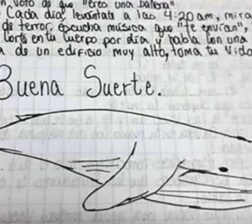 voto de que "eres una ballena"
Cada día levántate a las 4:20 am, mira
de terror, escucha música que "te envían",
corte en tu cuerpo por día y habla con una
de un edificio muy alto, toma tu vida
Buena Suerte.